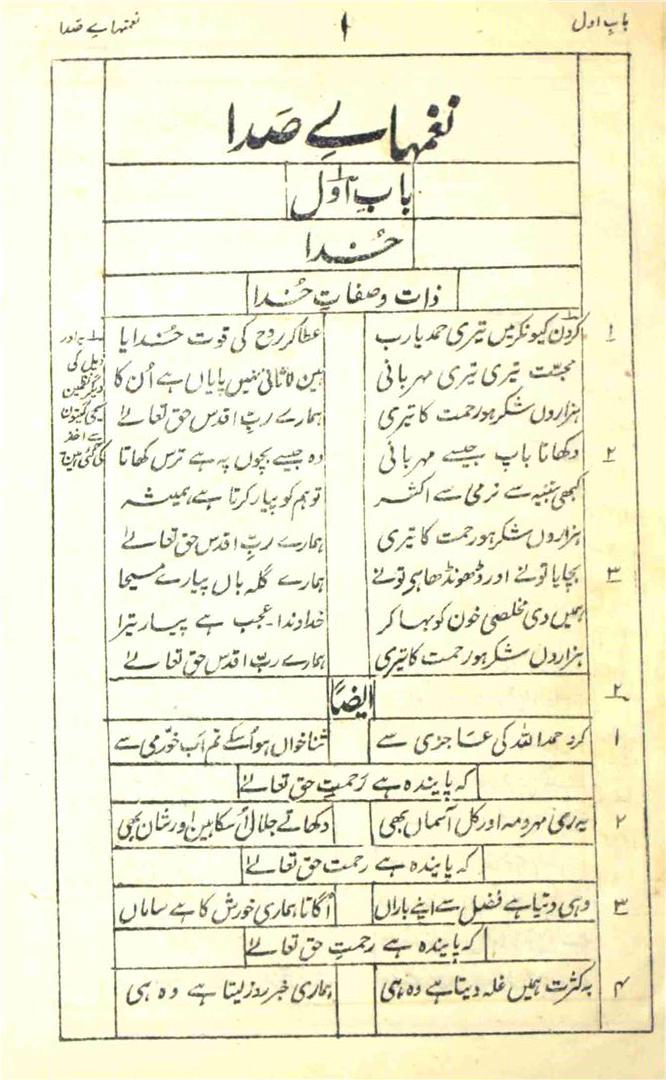 باب اول ۱ نغمہاے صَدا
نغمہاےِ صَدا
بابِ اوّل
خُدا
ذات وصفاتِ خُدا
۱ کروں کیونکر میں تیری حمد یارب عطا کر روح کی قوت خُدایا
محبّت تیری تیری مہربانی ہین لاثانی نہیں پایاں ہے اُن کا
ہزاروں شکر ہو رحمت کا تیری ہمارے ربِّ اقدس حق تعالےٰ
۲ دکھاتا باپ جیسے مہربانی وہ جیسے بچوں پہ ہے ترس کھاتا
کبھی تنبیہ سے نرمی سے اکثر تو ہم کو پیار کرتا ہے ہمیشہ
ہزاروں شکر ہو رحمت کا تیری ہمارے ربِّ اقدس حق تعالےٰ
۳ بچایا تونے اور ڈھونڈھا ہی تونے ہمارے گلہ باں پیارے مسیحا
ہمیں دی مخلصی خون کو بہا کر خداوندا عجب ہے پیار تیرا
ہزاروں شکر ہو رحمت کا تیری ہمارے ربِّ اقدس حق تعالےٰ
یہ اور
ذیل کی
دیگر نظمین
مسیحی گیتون
سے اخذ
کی گئی ہین
۲ ایضاً
۱ کرو حمد اللہ کی عاجزی سے ثنا خواں ہو اُسکے تم اَب خوّرمی سے
کہ پایندہ ہے رَحمتِ حق تعالےٰ
۲ یہ مہر و مہ اور کل آسماں بھی دکھاتے جلال اُسکا ہین اور شان بھی
کہ پایندہ ہے رحمت حق تعالےٰ
۳ وہی دیتا ہے فضل سے اپنے باراں اُگاتا ہماری خورش کا ہے ساماں
کہ پایندہ ہے رحمتِ حق تعالےٰ
۴ بہ کثرت ہمیں غلہ دیتا ہے وہ ہی ہماری خبر روز لیتا ہے وہ ہی